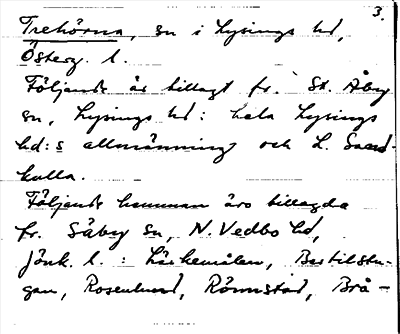 3.
Trehörna, sn i Lysings hd,
Österg. l.
Följande är tillagt fr. St. Åby
sn, Lysings hd: hela Lysings
hd:s allmänning och L. Sand-
kulla.
Följande hemman äro tillagda
fr. Säby sn, N. Vedbo hd,
Jönk. l. : Bastilstu-
gan, Rosenlund, Rönnstad, Brå-